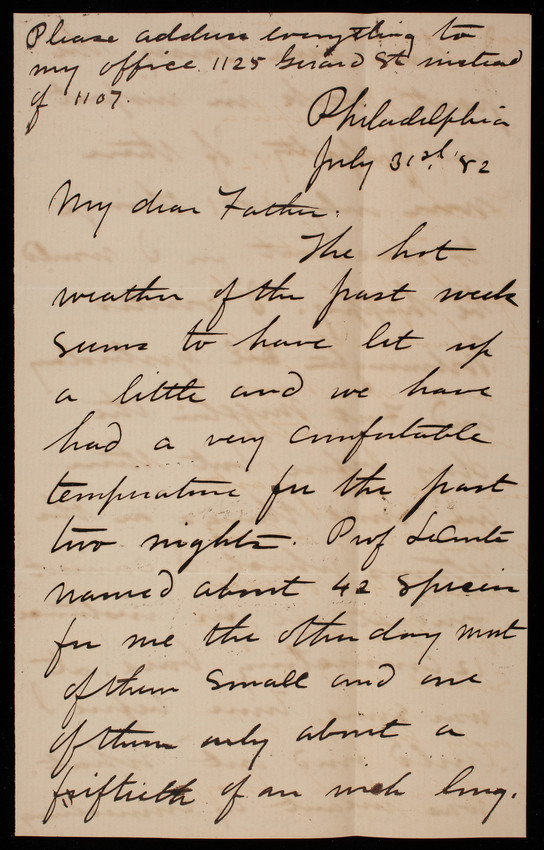 Please address everything to
my office 1125 Girard St instead
of 1107.
Philadelphia
July 31st, '82
My dear Father.
The hot
weather of the past week
seems to have let up
a little and we have
had a very comfortable
temperature for the past
two nights. Prof LeConte
named about 42 species
for me the other day most
of them small and one
of them only about a
fiftieth of an inch long.